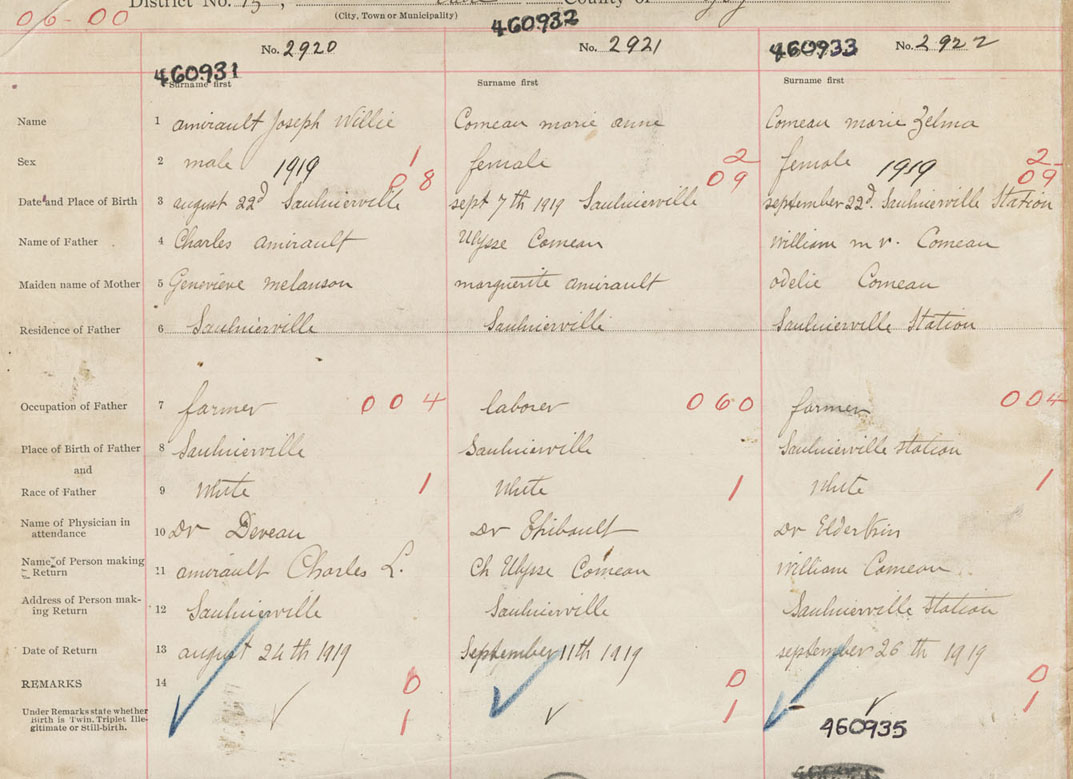 District No. 15, County of
(City, Town or Municipality)
06-00
460932
No. 2920 No. 2921 460933 No. 2922
460931
Surname first Surname first Surname first
Name 1 amirault Joseph Willie Comeau marie anne Comeau marie Zelma
Sex 2 male 1919 1 female 2 female 1919 2
08 09 09
Date and Place of Birth 3 august 22d Saulnierville sept 7th 1919 Saulnierville september 22d. Saulnierville Station
Name of Father 4 Charles amirault Ulysse Comeau William m v. Comeau
Maiden name of Mother 5 Genevieve melanson marguerite amirault odelie Comeau
Residence of Father 6 Saulnierville Saulnierville Saulnierville Station
Occupation of Father 7 farmer 004 laborer 060 farmer 004
Place of Birth of Father 8 Saulnierville Saulnierville Saulnierville station
and
Race of Father 9 White 1 White 1 White 1
Name of Physician in
attendance 10 Dr Deveau Dr Thibault Dr Elderkin
Name of Person making
Return 11 amirault Charles L. Ch Ulysse Comeau William Comeau
Address of Person mak-
ing Return 12 Saulnierville Saulnierville Saulnierville station
Date of Return 13 august 24th 1919 September 11th 1919 september 26th 1919
REMARKS 14 0 0 0
Under Remarks state whether
Birth is Twin, Triplet Ille-
gitimate or Still-birth. 1 1 1
460935